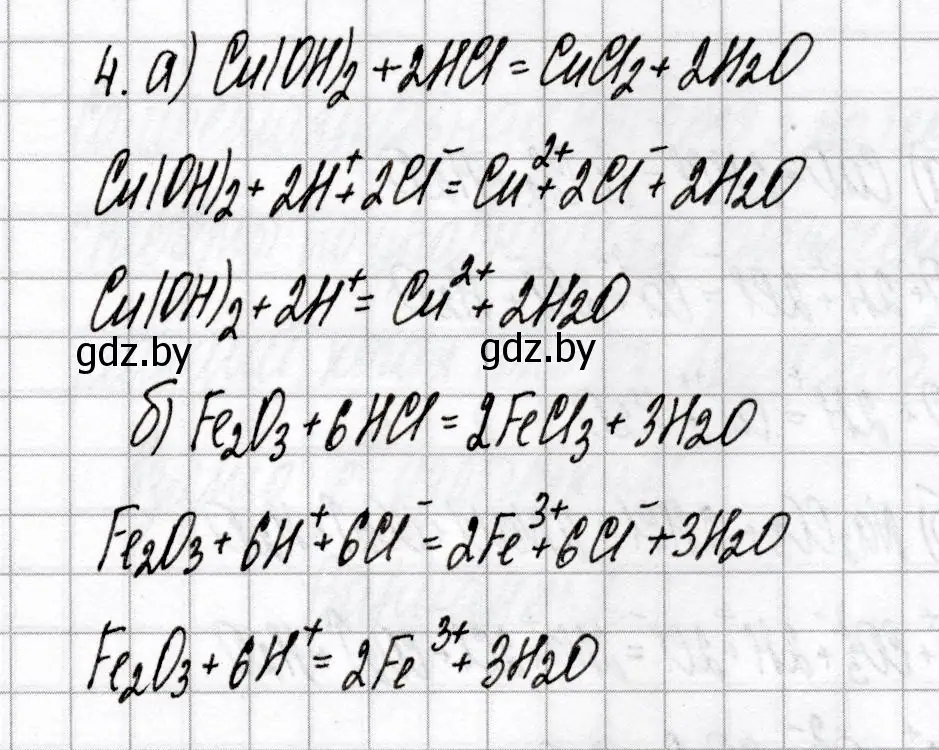 4. а) Cu(OH)₂ + 2HCl = CuCl₂ + 2H₂O
Cu(OH)₂ + 2H⁺ + 2Cl⁻ = Cu²⁺ + 2Cl⁻ + 2H₂O
Cu(OH)₂ + 2H⁺ = Cu²⁺ + 2H₂O
gdz.by gdz.by
б) Fe₂O₃ + 6HCl = 2FeCl₃ + 3H₂O
Fe₂O₃ + 6H⁺ + 6Cl⁻ = 2Fe³⁺ + 6Cl⁻ + 3H₂O
Fe₂O₃ + 6H⁺ = 2Fe³⁺ + 3H₂O